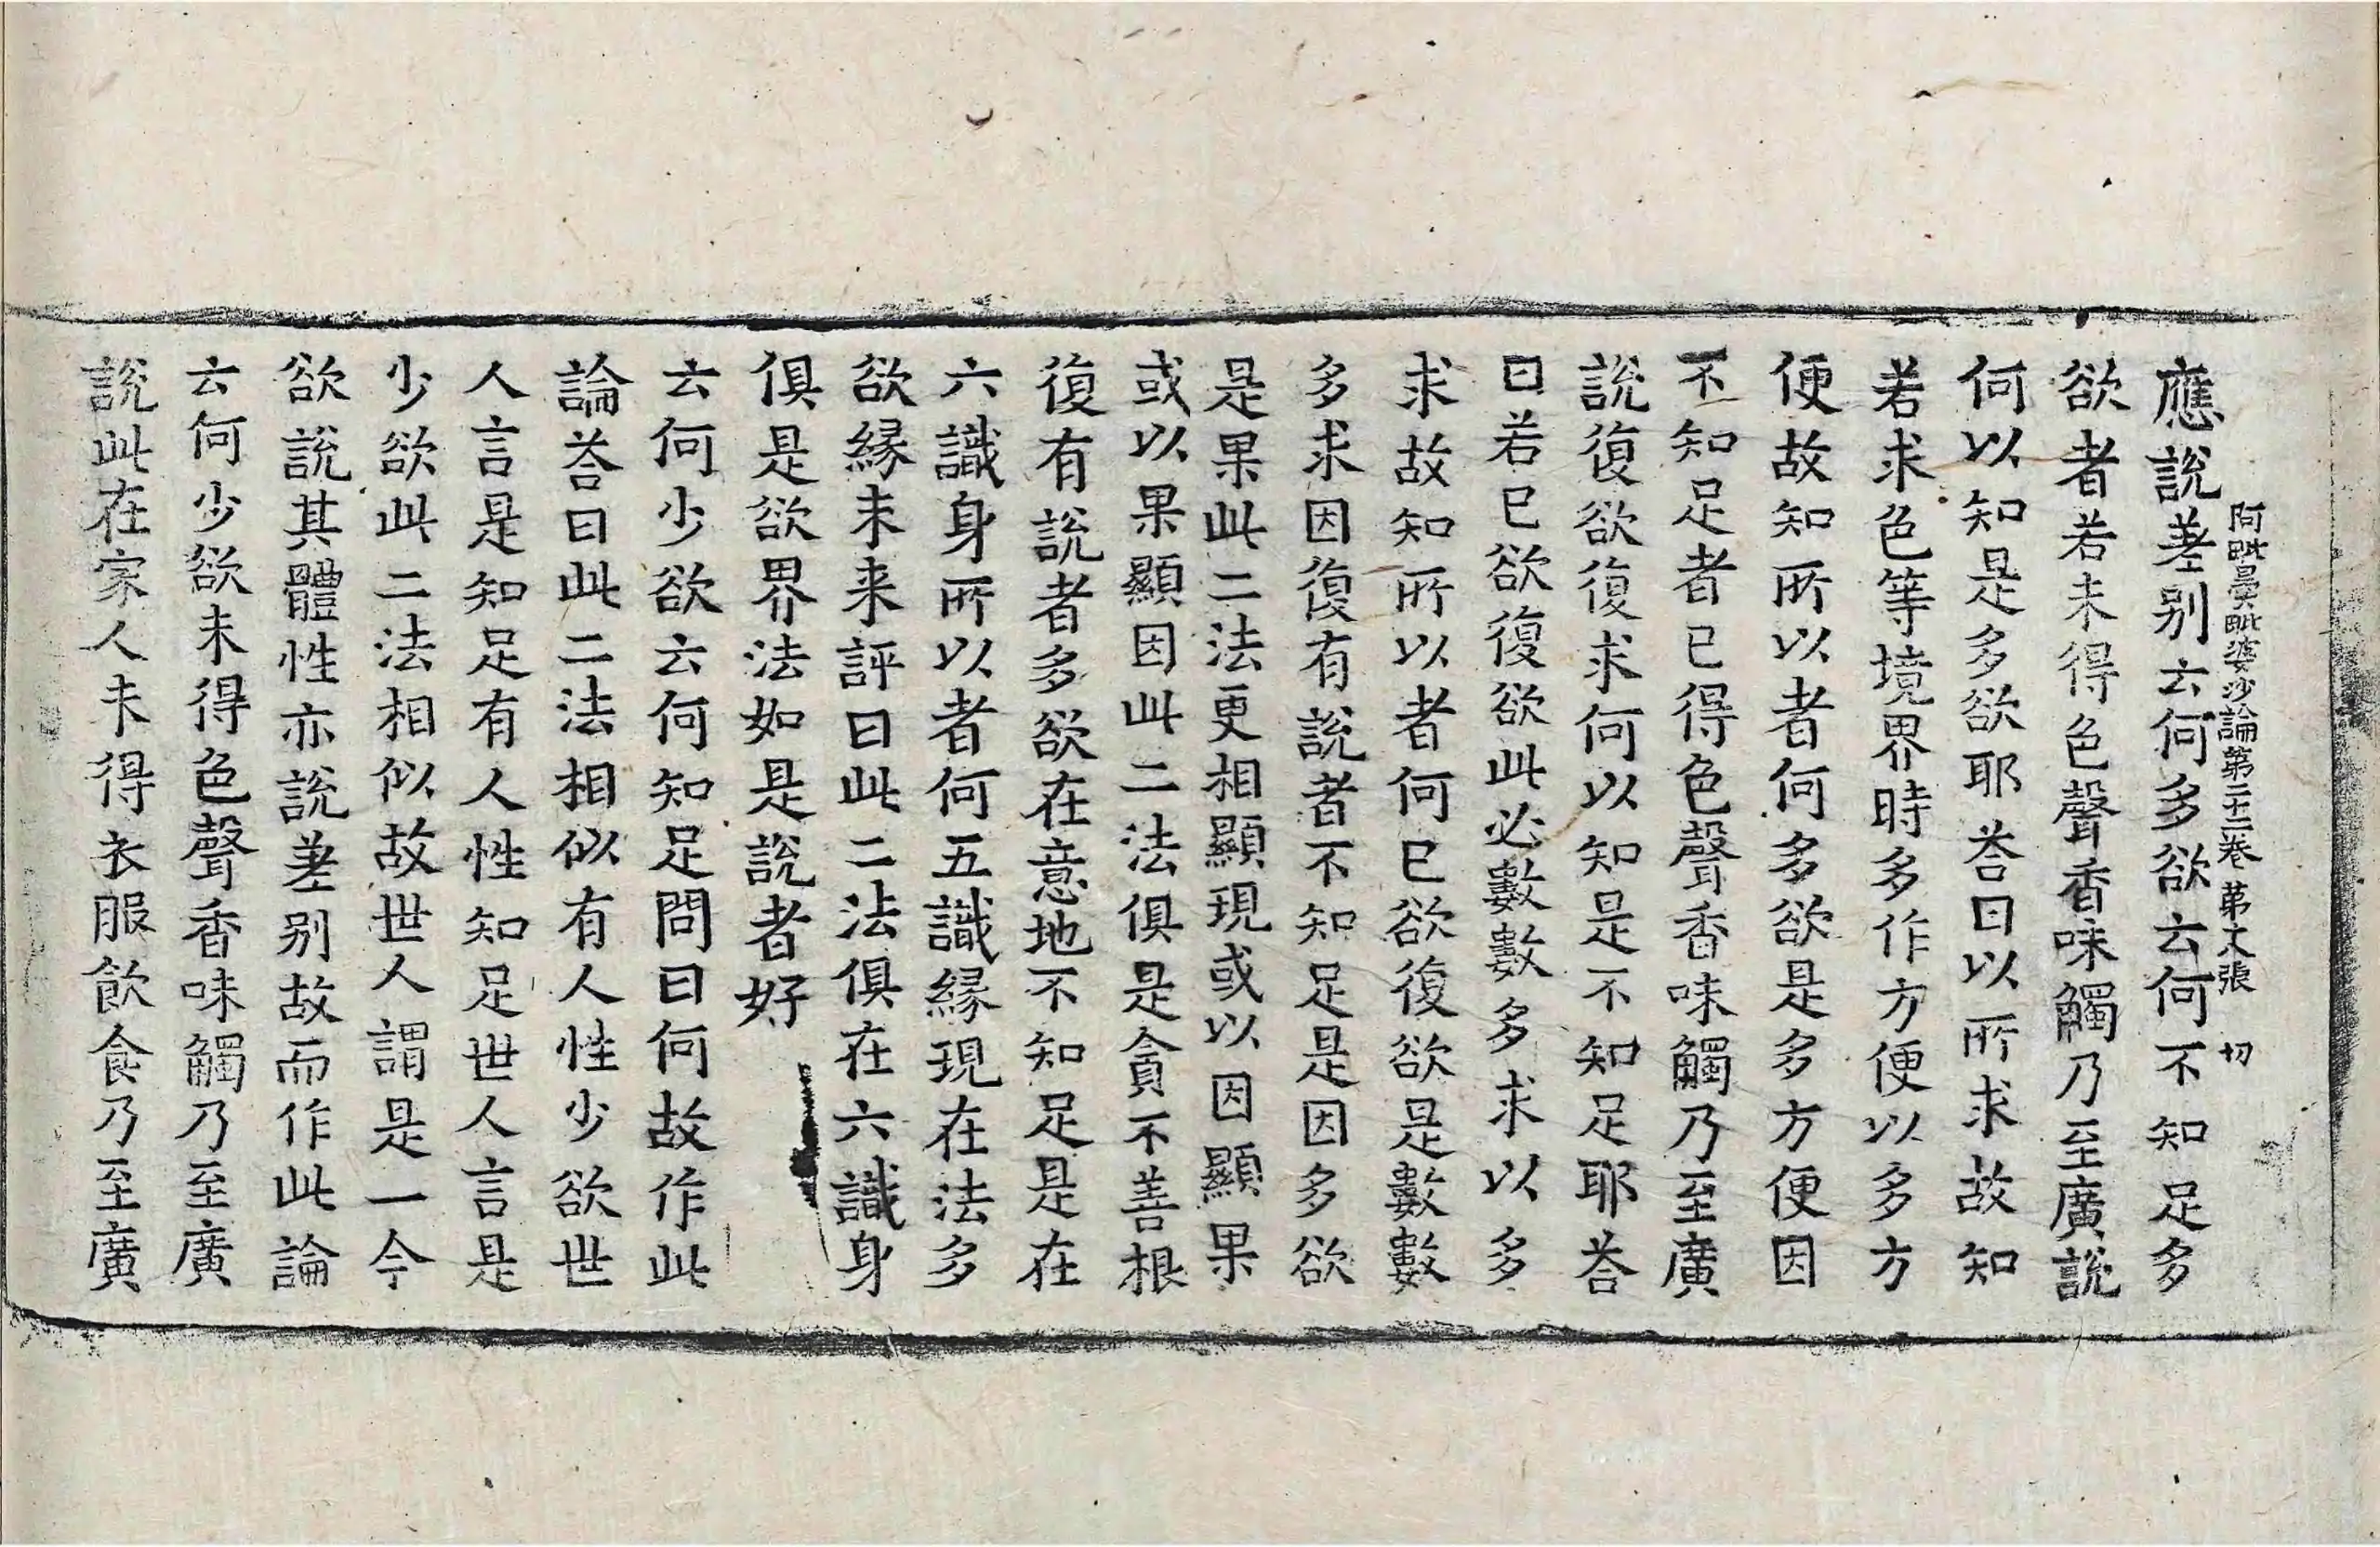 應說差別云何多欲云何不知足多
阿毗曇毗婆沙論第二十二卷 第 張 切
欲者若未得色聲香味觸乃至廣說
何以知是多欲耶荅曰以所求故知
若求色等境界時多作方便以多方
便故知所以者何多欲是多方便因
不知足者已得色聲香味觸乃至廣
說復欲復求何以知是不知足耶荅
曰若已欲復欲此必數數多求以多
求故知所以者何已欲復欲是數數
多求因復有說者不知足是因多欲
是果此二法更相顯現或以因顯果
或以果顯因此二法俱是貪不善根
復有說者多欲在意地不知足是在
六識身所以者何五識緣現在法多
欲緣未来評曰此二法俱在六識身
俱是欲界法如是說者好
云何少欲云何知足問曰何故作此
論荅曰此二法相似有人性少欲世
人言是知足有人性知足世人言是
少欲此二法相似故世人謂是一今
欲說其體性亦說差別故而作此論
云何少欲未得色聲香味觸乃至廣
說此在家人未得衣服飲食乃至廣